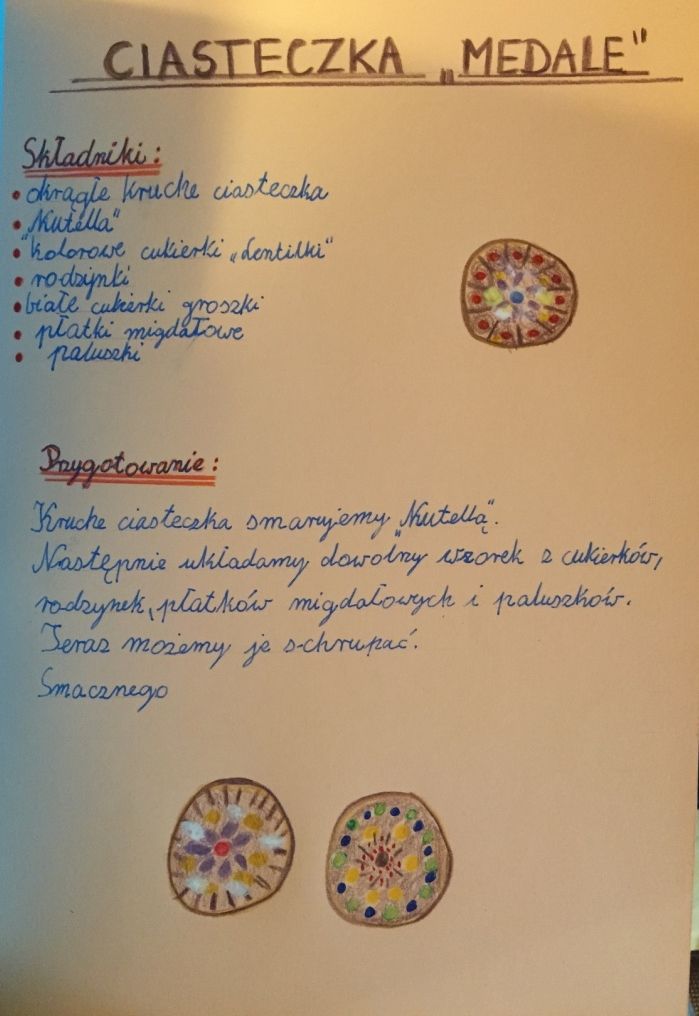 CIASTECZKA „MEDALE"
Składniki:
• okrągłe kruche ciasteczka
• „Nutella"
• kolorowe cukierki „Lentilki"
• rodzynki
• białe cukierki groszki
• płatki migdałowe
• paluszki
Przygotowanie:
Kruche ciasteczka smarujemy „Nutellą".
Następnie układamy dowolny wzorek z cukierków,
rodzynek, płatków migdałowych i paluszków.
Teraz możemy je s-chrupać.
Smacznego